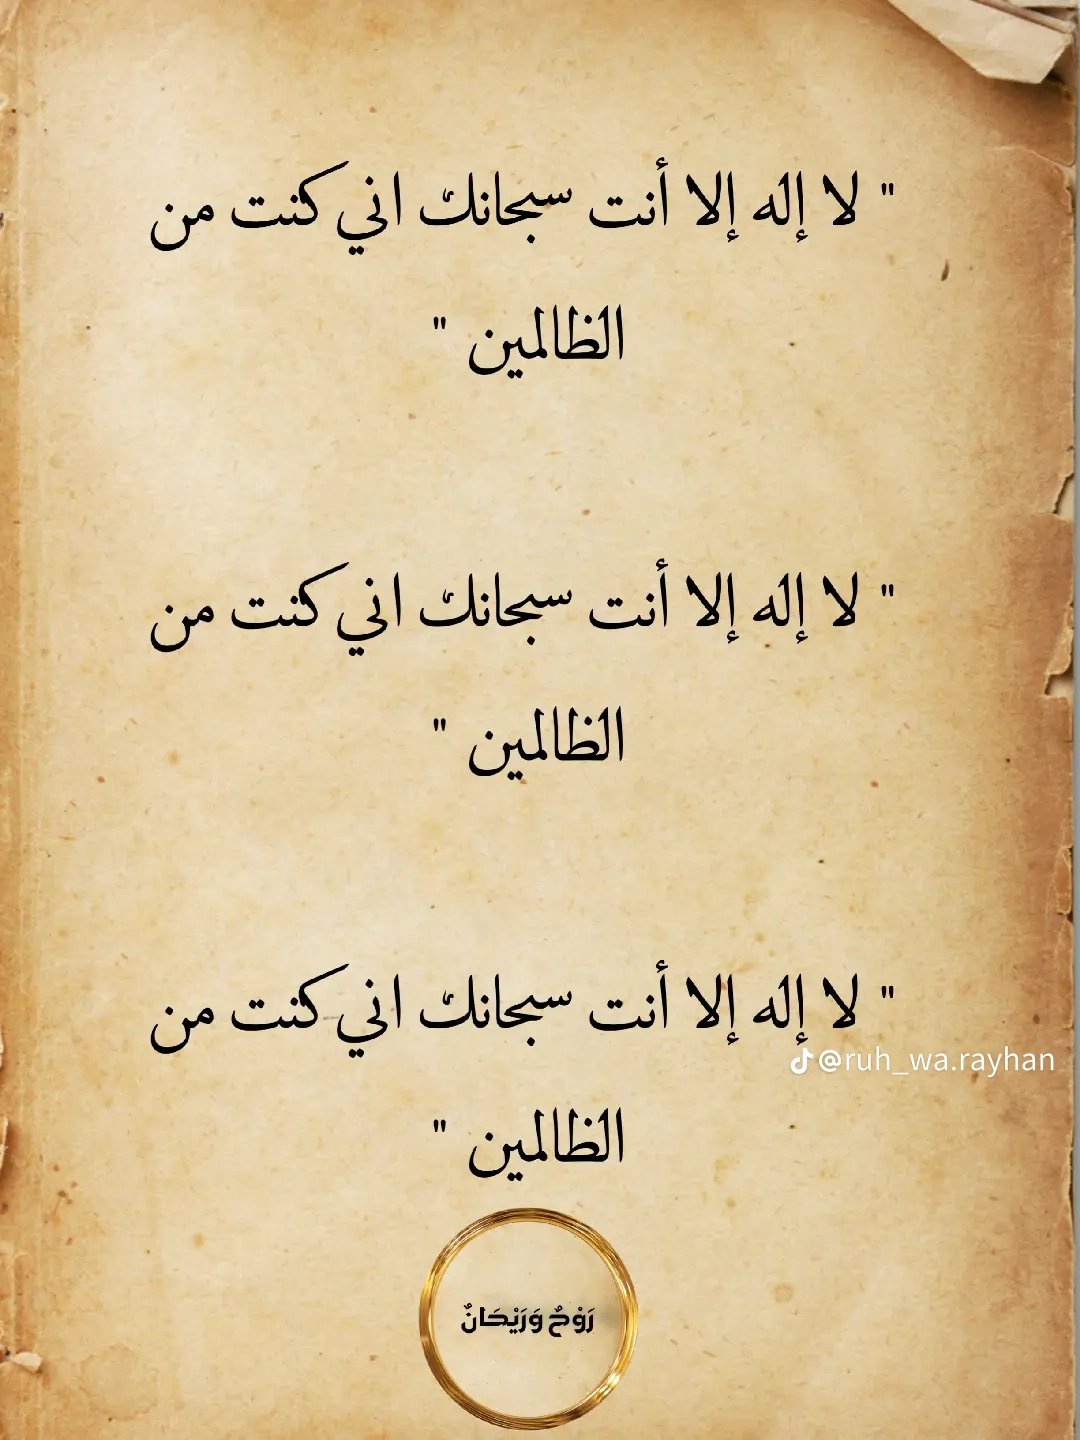 " لا إله إلا أنت سبحانك اني كنت من
الظالمين "
" لا إله إلا أنت سبحانك اني كنت من
الظالمين "
" لا إله إلا أنت سبحانك اني كنت من
@ruh_wa.rayhan
الظالمين "
رَوْحٌ وَرَيْحَانٌ